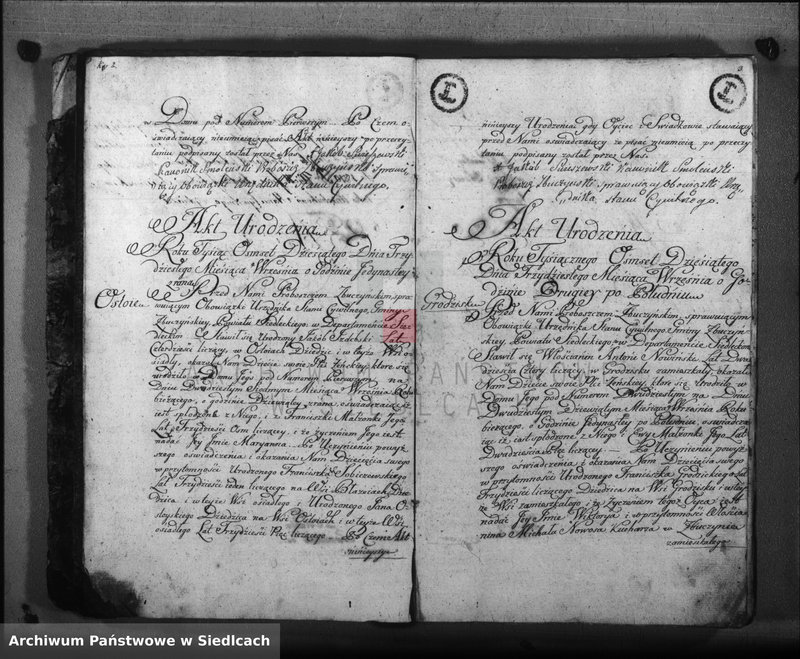 w Domu pod Numerem Pierwszym. Po czem o-
świadczaiący nieumieią pisać Akt ninieyszy po przeczy-
taniu podpisany został przez Nas.
Kanonik Smoleński sprawui-
ący obowiązki Urzędnika Stanu Cywilnego.
Akt Urodzenia
Roku Tysiąc Osmset Dziesiątego Dnia Trzy-
dziestego Miesiąca Września o Godzinie Jedynastey
zrana
Osłoie
Przed Nami Proboszczem Zbuczyńskim spra-
wuiącym Obowiązki Urzędnika Stanu Cywilnego, Gminy
Zbuczyńskiey Powiatu Siedleckiego w Departamencie Sie-
dleckim Stawił się Urodzony Jakób Lat
Czterdzieści liczący, w Osłoiach Dziedzic i w teyże Wsi o-
siadły, okazał Nam Dziecie swoie Płci Żeńskiey które się
urodziło w Domu Jego pod Numerem Pierwszym na
Dniu Dwudziestym Siodmym Miesiąca Września Roku
bieżącego, o godzinie Dziewiątey zrana, oświadczaiąc iż
iest spłodzone z Niego i Franciszki Małżonki Jego
Lat Trzydzieści Osm liczącey, i że życzeniem Jego iest
nadać Jey Imie Maryanna. Po Uczynieniu powyż-
szego oświadczenia i okazania Nam Dziecięcia swego
w przytomności Urodzonego Franciszka Sobieszewskiego
Lat Trzydzieści ieden liczącego na Wsi Błaziaich Dzie-
dzica i w teyże Wsi osiadłego i Urodzonego Jana O-
Dziedzica na Wsi Osłoiach i w teyże Wsi
osiadłego Lat Trzydzieści Pięć liczącego. Po Czem Akt
ninieyszy
3
ninieyszy Urodzenia gdy Oyciec i Swiadkowie stawaiący
przed Nami oświadczaiący że pisać nieumieią po przeczy-
taniu podpisany został przez Nas.
X Jakób Ruszewski Kanonik Smoleński
Proboszcz Zbuczyński sprawuiący Obowiązki Urzę-
dnika stanu Cywilnego.
Akt Urodzenia
Roku Tysiącznego Osmset Dziesiątego
Dnia Trzydziestego Miesiąca Września o Go-
dzinie Drugiey po Południu
Grodzisku
Przed Nami Proboszczem Zbuczyńskim sprawuiącym
Obowiązki Urzędnika Stanu Cywilnego Gminy Zbuczyń-
skiey Powiatu Siedleckiego w Departamencie Siedleckim
Stawił się Włościanin Antoni Nowiński Lat Dwa-
dzieścia Cztery liczący w Grodzisku zamieszkały, okazał
Nam Dziecie swoie Płci Żeńskiey które się Urodziło w
Domu Jego pod Numerem Dwudziestym na Dniu
Dwudziestym Dziewiątym Miesiąca Września Roku
bieżącego, o Godzinie Jedynastey po Południu, oświadcza-
iąc iż iest spłodzone z Niego i Ewy Małżonki Jego Lat
Dwadzieścia liczącey. Po Uczynieniu powyż-
szego oświadczenia i okazania Nam Dziecięcia swego
w przytomności Urodzonego Franciszka Grodzickiego Lat
Trzydzieści liczącego Dziedzica na Wsi Grodzisku i w tey-
że Wsi zamieszkałego, że życzeniem tegoż Oyca iest
nadać Jey Imie Wiktorya i w przytomności Włościa-
nina Michała Nowosa Kucharza w Zbuczynie
zamieszkałego
Archiwum Państwowe w Siedlcach